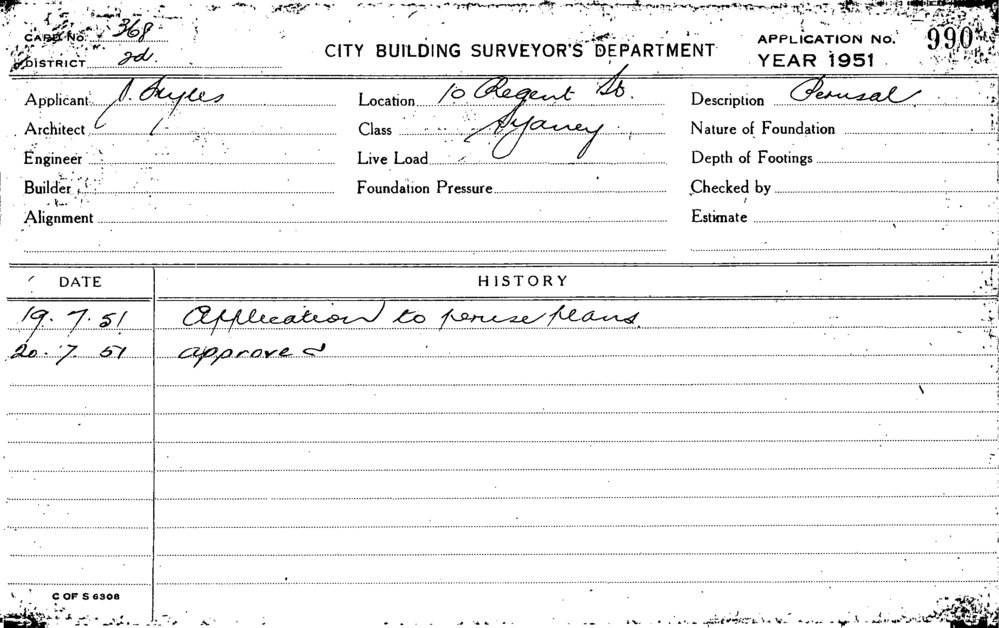 CARD No. 368
DISTRICT 2d.
CITY BUILDING SURVEYOR'S DEPARTMENT
APPLICATION No. 990
YEAR 1951
Applicant J.
Location 10 Regent St.
Description Perusal
Architect
Class Sydney
Nature of Foundation
Engineer
Live Load
Depth of Footings
Builder
Foundation Pressure
Checked by
Alignment
Estimate
DATE HISTORY
19. 7. 51 Application to peruse plans.
20. 7. 51 approved
C OF S 6308